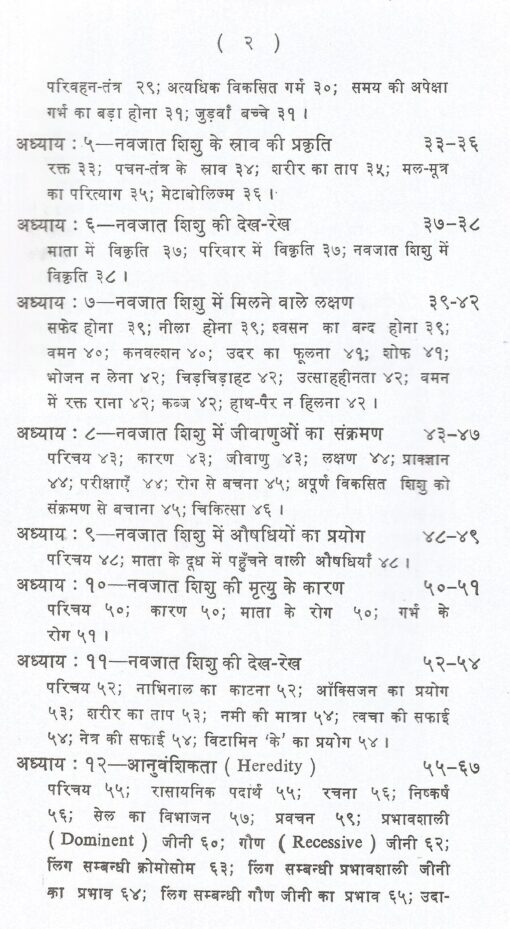 ( २ )
परिवहन-तंत्र २९; अत्यधिक विकसित गर्म ३०; समय की अपेक्षा
गर्भ का बड़ा होना ३१; जुड़वाँ बच्चे ३१ ।
अध्याय : ५—नवजात शिशु के स्राव की प्रकृति ३३-३६
रक्त ३३; पचन-तंत्र के स्राव ३४; शरीर का ताप ३५; मल-मूत्र
का परित्याग ३५; मेटाबोलिज्म ३६ ।
अध्याय : ६—नवजात शिशु की देख-रेख ३७-३८
माता में विकृति ३७; परिवार में विकृति ३७; नवजात शिशु में
विकृति ३८ ।
अध्याय : ७—नवजात शिशु में मिलने वाले लक्षण ३९-४२
सफेद होना ३९; नीला होना ३९; श्वसन का बन्द होना ३९;
वमन ४०; कनवल्शन ४०; उदर का फूलना ४१; शोफ ४१;
भोजन न लेना ४२; चिड़चिड़ाहट ४२; उत्साहहीनता ४२; वमन
में रक्त राना ४२; कब्ज ४२; हाथ-पैर न हिलना ४२ ।
अध्याय : ८—नवजात शिशु में जीवाणुओं का संक्रमण ४३-४७
परिचय ४३; कारण ४३; जीवाणु ४३; लक्षण ४४; प्राक्ज्ञान
४४; परीक्षाएँ ४४; रोग से बचना ४५; अपूर्ण विकसित शिशु को
संक्रमण से बचाना ४५; चिकित्सा ४६ ।
अध्याय : ९—नवजात शिशु में औषधियों का प्रयोग ४८-४९
परिचय ४८; माता के दूध में पहुँचने वाली औषधियाँ ४८ ।
अध्याय : १०—नवजात शिशु की मृत्यु के कारण ५०-५१
परिचय ५०; कारण ५०; माता के रोग ५०; गर्भ के
रोग ५१ ।
अध्याय : ११—नवजात शिशु की देख-रेख ५२-५४
परिचय ५२; नाभिनाल का काटना ५२; ऑक्सिजन का प्रयोग
५३; शरीर का ताप ५३; नमी की मात्रा ५४; त्वचा की सफाई
५४; नेत्र की सफाई ५४; विटामिन ‘के’ का प्रयोग ५४ ।
अध्याय : १२—आनुवंशिकता ( Heredity ) ५५-६७
परिचय ५५; रासायनिक पदार्थ ५५; रचना ५६; निष्कर्ष
५६; सेल का विभाजन ५७; प्रवचन ५९; प्रभावशाली
( Dominent ) जीनी ६०; गौण ( Recessive ) जीनी ६२;
लिंग सम्बन्धी क्रोमोसोम ६३; लिंग सम्बन्धी प्रभावशाली जीनी
का प्रभाव ६४; लिंग सम्बन्धी गौण जीनी का प्रभाव ६५; उदा-